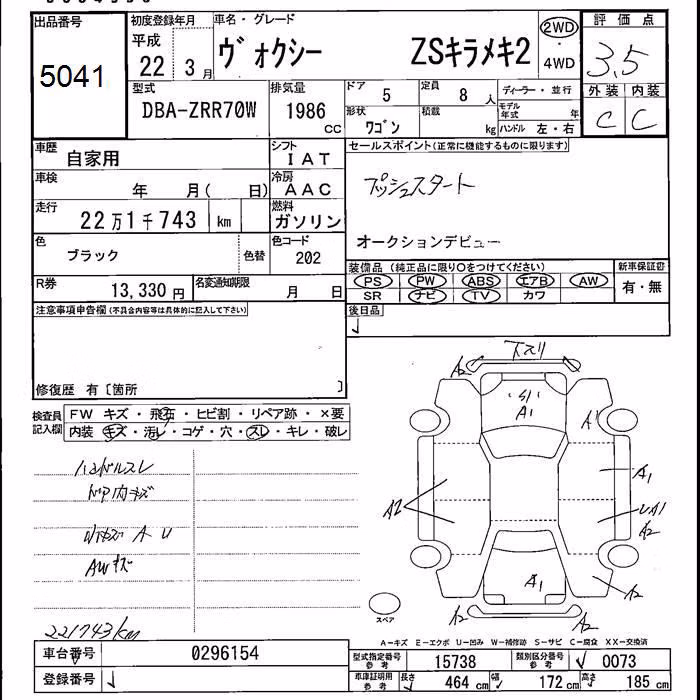 出品番号 初度登録年月 車名・グレード 評価点
5041 平成 22 3月 ヴォクシー ZSキラメキ2 2WD・4WD 3.5
型式 排気量 ドア 定員 ディーラー・並行 外装 内装
DBA-ZRR70W 1986 cc 5 8人 C C
形状 ワゴン 積載 kg モデル年式 年 ハンドル 左・右
車歴 自家用 シフト IAT セールスポイント(正常に機能するものに限ります)
車検 年 月( 日) 冷房 AAC プッシュスタート
走行 22万1千743 km 燃料 ガソリン
色 ブラック 色替 色コード 202 オークションデビュー
装備品 (純正品に限り○をつけてください) 新車保証書
R券 13,330円 名変通知期限 月 日 PS PW ABS エアB AW 有・無
SR ナビ TV カワ
注意事項申告欄(不具合内容等は具体的に記入して下さい) 後日品
修復歴 有〔箇所 〕
検査員記入欄 FW キズ・飛石・ヒビ割・リペア跡・×要
内装 キズ・汚レ・コゲ・穴・スレ・キレ・破レ
下スリ
A2 A2
S1
A1 A1
A1
A2 UA1
A2
A1 A2
A2 A2
ハンドルスレ
ドア内キズ
A U
AWキズ
スペア
221743km
A-キズ E-エクボ U-凹み W-補修跡 S-サビ C-腐食 XX-交換済
車台番号 0296154 型式指定番号 参考 15738 類別区分番号 参考 0073
登録番号 車庫証明用 参考 長さ 464 cm 幅 172 cm 高さ 185 cm